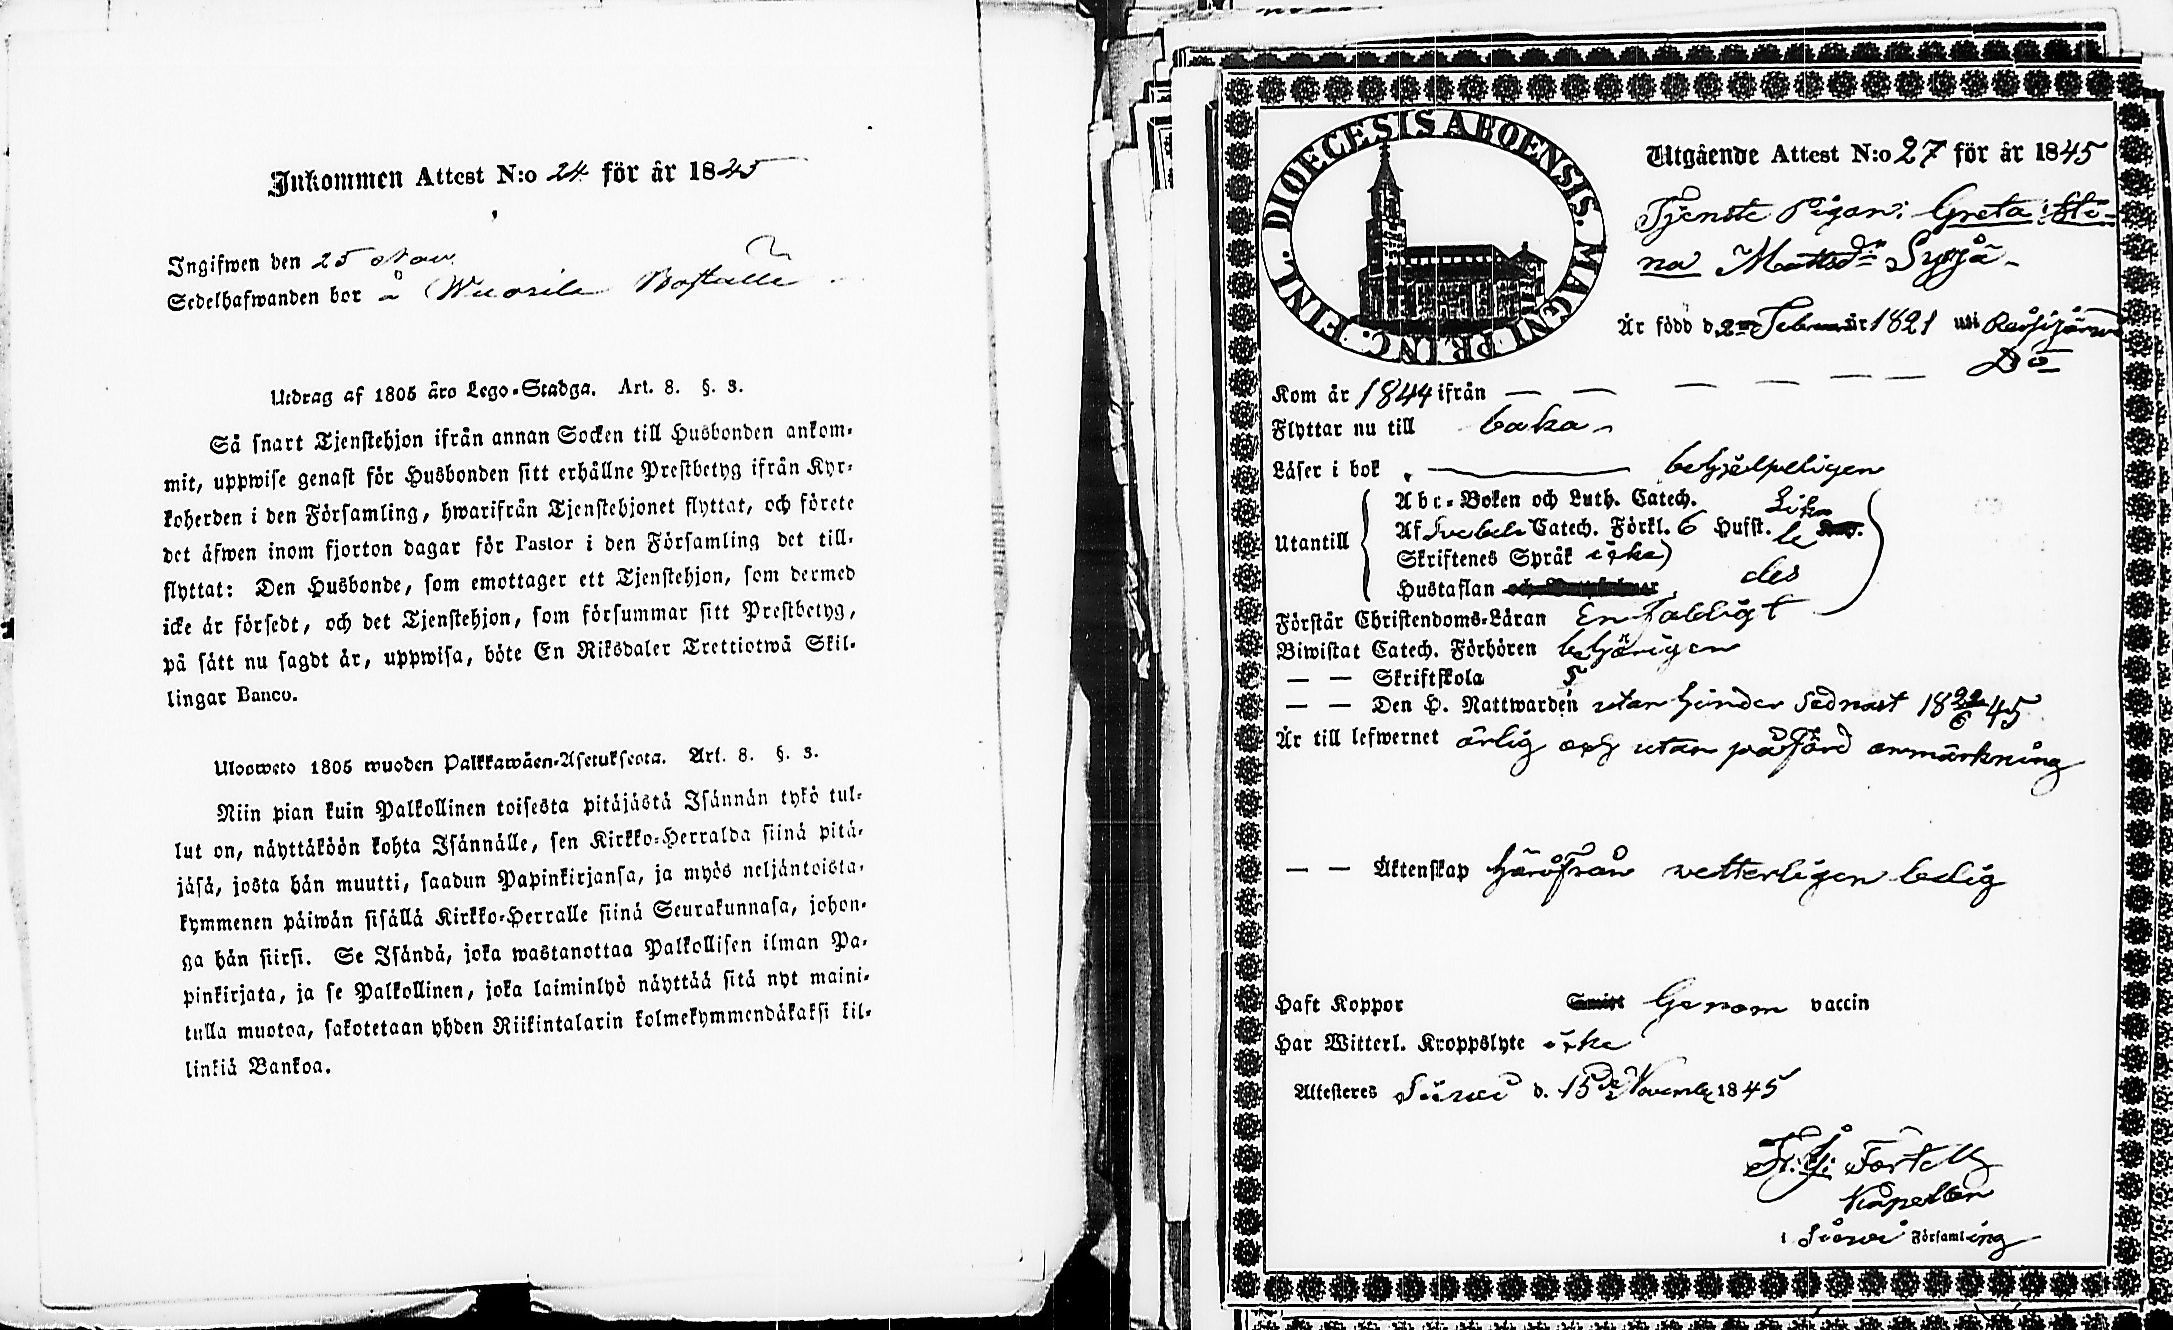 Inkommen Attest N:o 24 för år 1845
Ingifwen den 25 Nov.
Sedelhafwanden bor å Wuorila Boställe
Utdrag af 1805 års Lego-Stadga. Art. 8. §. 3.
Så snart Tjenstehjon ifrån annan Socken till Husbonden ankom-
mit, uppwise genast för Husbonden sitt erhållne Prestbetyg ifrån Kyr-
koherden i den Församling, hwarifrån Tjenstehjonet flyttat, och förete
det äfwen inom fjorton dagar för Pastor i den Församling det till-
flyttat: Den Husbonde, som emottager ett Tjenstehjon, som dermed
icke är försedt, och det Tjenstehjon, som försummar sitt Prestbetyg,
på sätt nu sagdt är, uppwisa, böte En Riksdaler Trettiotwå Skil-
lingar Banco.
Uloosweto 1805 wuoden Palkkawäen-Asetuksesta. Art. 8. §. 3.
Niin pian kuin Palkollinen toisesta pitäjästä Isännän tykö tul-
lut on, näyttäköön kohta Isännälle, sen Kirkko-Herralda siinä pitä-
jäsä, josta hän muutti, saadun Papinkirjansa, ja myös neljäntoista-
kymmenen päiwän sisällä Kirkko-Herralle siinä Seurakunnasa, johon-
ga hän siirsi. Se Isändä, joka wastanottaa Palkollisen ilman Pa-
pinkirjata, ja se Palkollinen, joka laiminlyö näyttää sitä nyt maini-
tulla muotoa, sakotetaan yhden Riikintalarin kolmekymmendäkaksi kil-
linkiä Bankoa.
DIOECESIS ABOENSIS. MAGNI PRINC. FINL.
Utgående Attest N:o 27 för år 1845
Tjenste Pigan: Greta Sti-
na Mattsdr Syrjä
Är född d. 2 Februari 1821 uti
Do
Kom år 1844 ifrån — — — — — —
Flyttar nu till baka
Läser i bok behjelpeligen
Abc-Boken och Luth. Catech.
Utantill Af Svebeli Catech. Förkl. 6 Hufst. Likaledes
Skriftenes Språk icke
Hustaflan
Förstår Christendoms-Läran Enfaldigt
Biwistat Catech. Förhören behörigen
— — Skriftskola
— — Den H. Nattwarden utan hinder sednast 18 22/6 45
Är till lefwernet ärlig och utan påförd anmärkning
— — Äktenskap härifrån vetterligen ledig
Haft Koppor Genom vaccin
Har Witterl. Kroppslyte icke
Attesteres d. 15de November 1845
Kapellan
i Församling